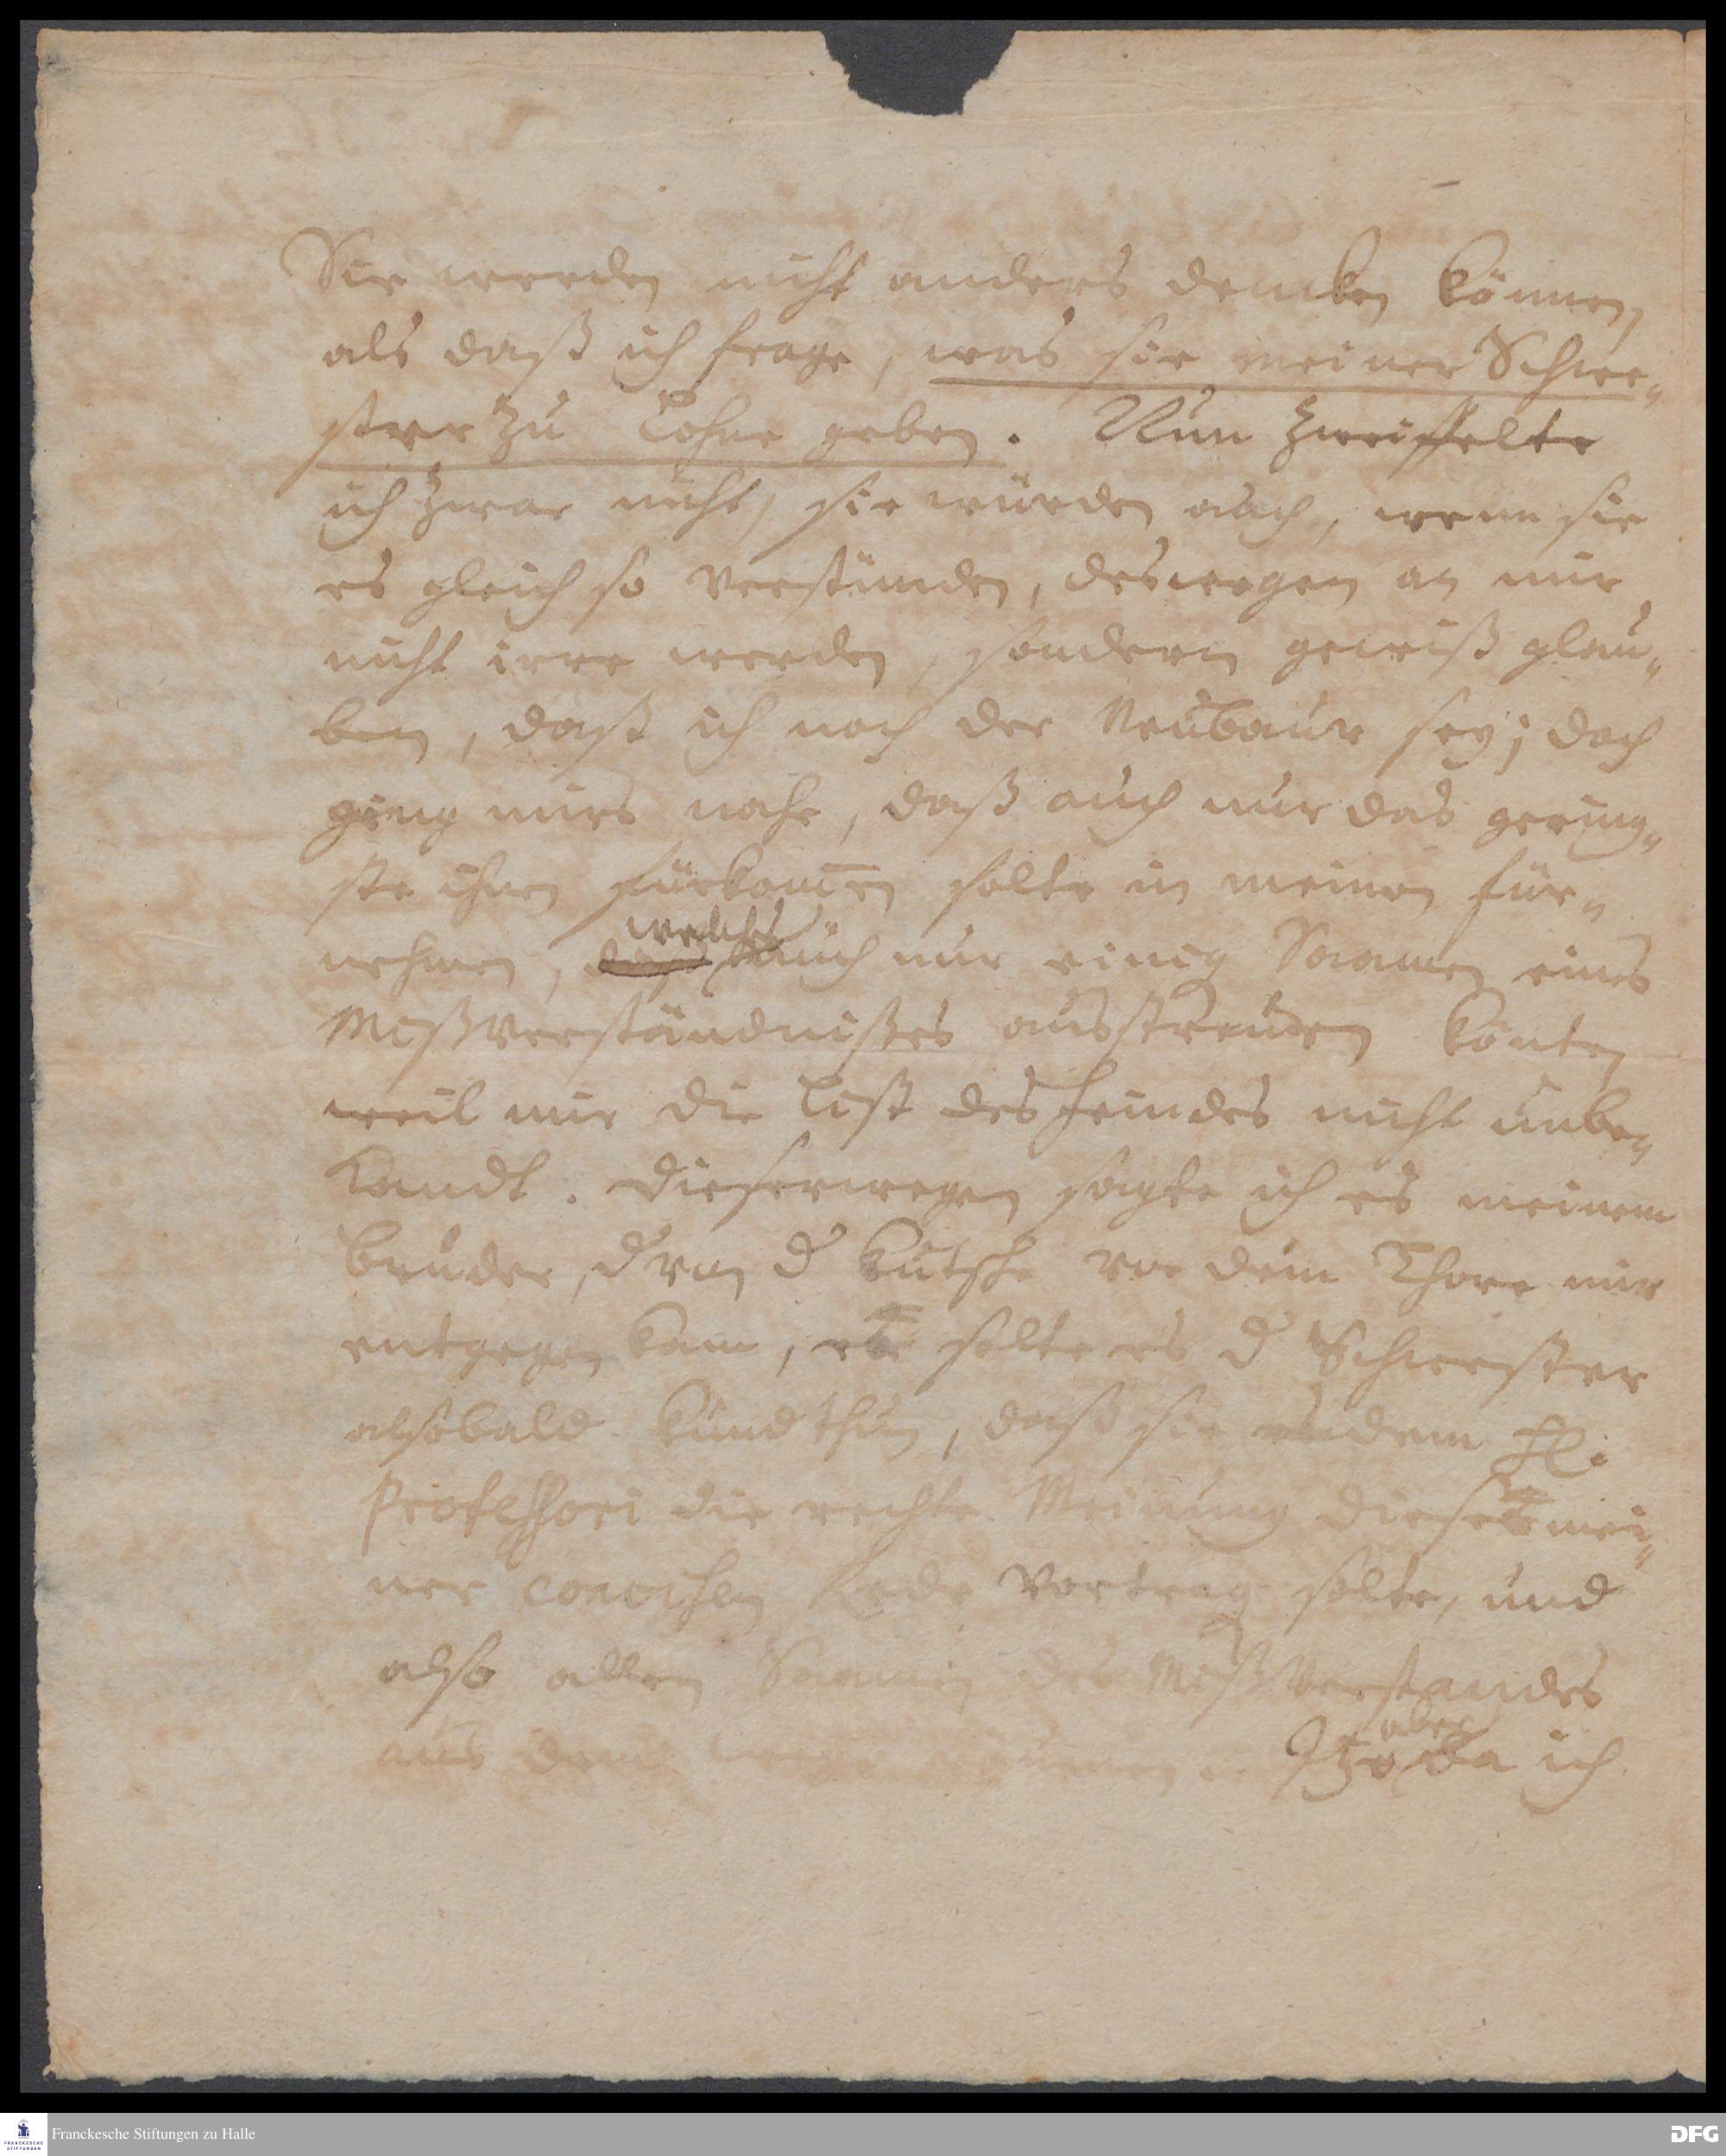 Sie werden nicht anders dencken können,
als daß ich frage, was sie meiner Schwe-
ster zu Lohne geben. Nun zweiffelte
ich zwar nicht, sie würden auch, wenn sie
es gleich so verstünden, deswegen an mir
nicht irre werden, sondern gewiß glau-
ben, daß ich noch der Neubaur sey; doch
ging mirs nahe, daß auch nur das gering-
ste ihnen fürkom̅en solte in meinen für-
nehmen, welches auch nur einig Saamen eines
Mißverständnißes ausstreuen könte,
weil mir die List des Feindes nicht unbe-
kandt. Dieserwegen sagte ich es meinem
Bruder, der in d Kutsche vor dem Thore mir
entgegen kam, er solte es d Schwester
alsobald kund thun, daß sie dem H.
Professori die rechte Meinung dieser mei-
ner Rede vortrag solte, und
also allen Saamen des Mißverstandes
aus dem wege räumen. Itzo aber da ich
Franckesche Stiftungen zu Halle
FRANCKESCHE
STIFTUNGEN
DFG